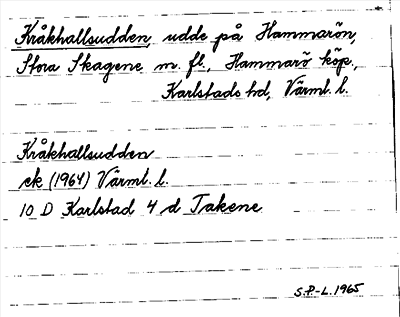 Kråkhallsudden, udde på Hammarön,
Stora Skagene m. fl., Hammarö köp.,
Karlstads hd, Värml. l.
Kråkhallsudden
ek (1964) Värml. l.
10 D Karlstad 4 d Takene
S.P-L. 1965